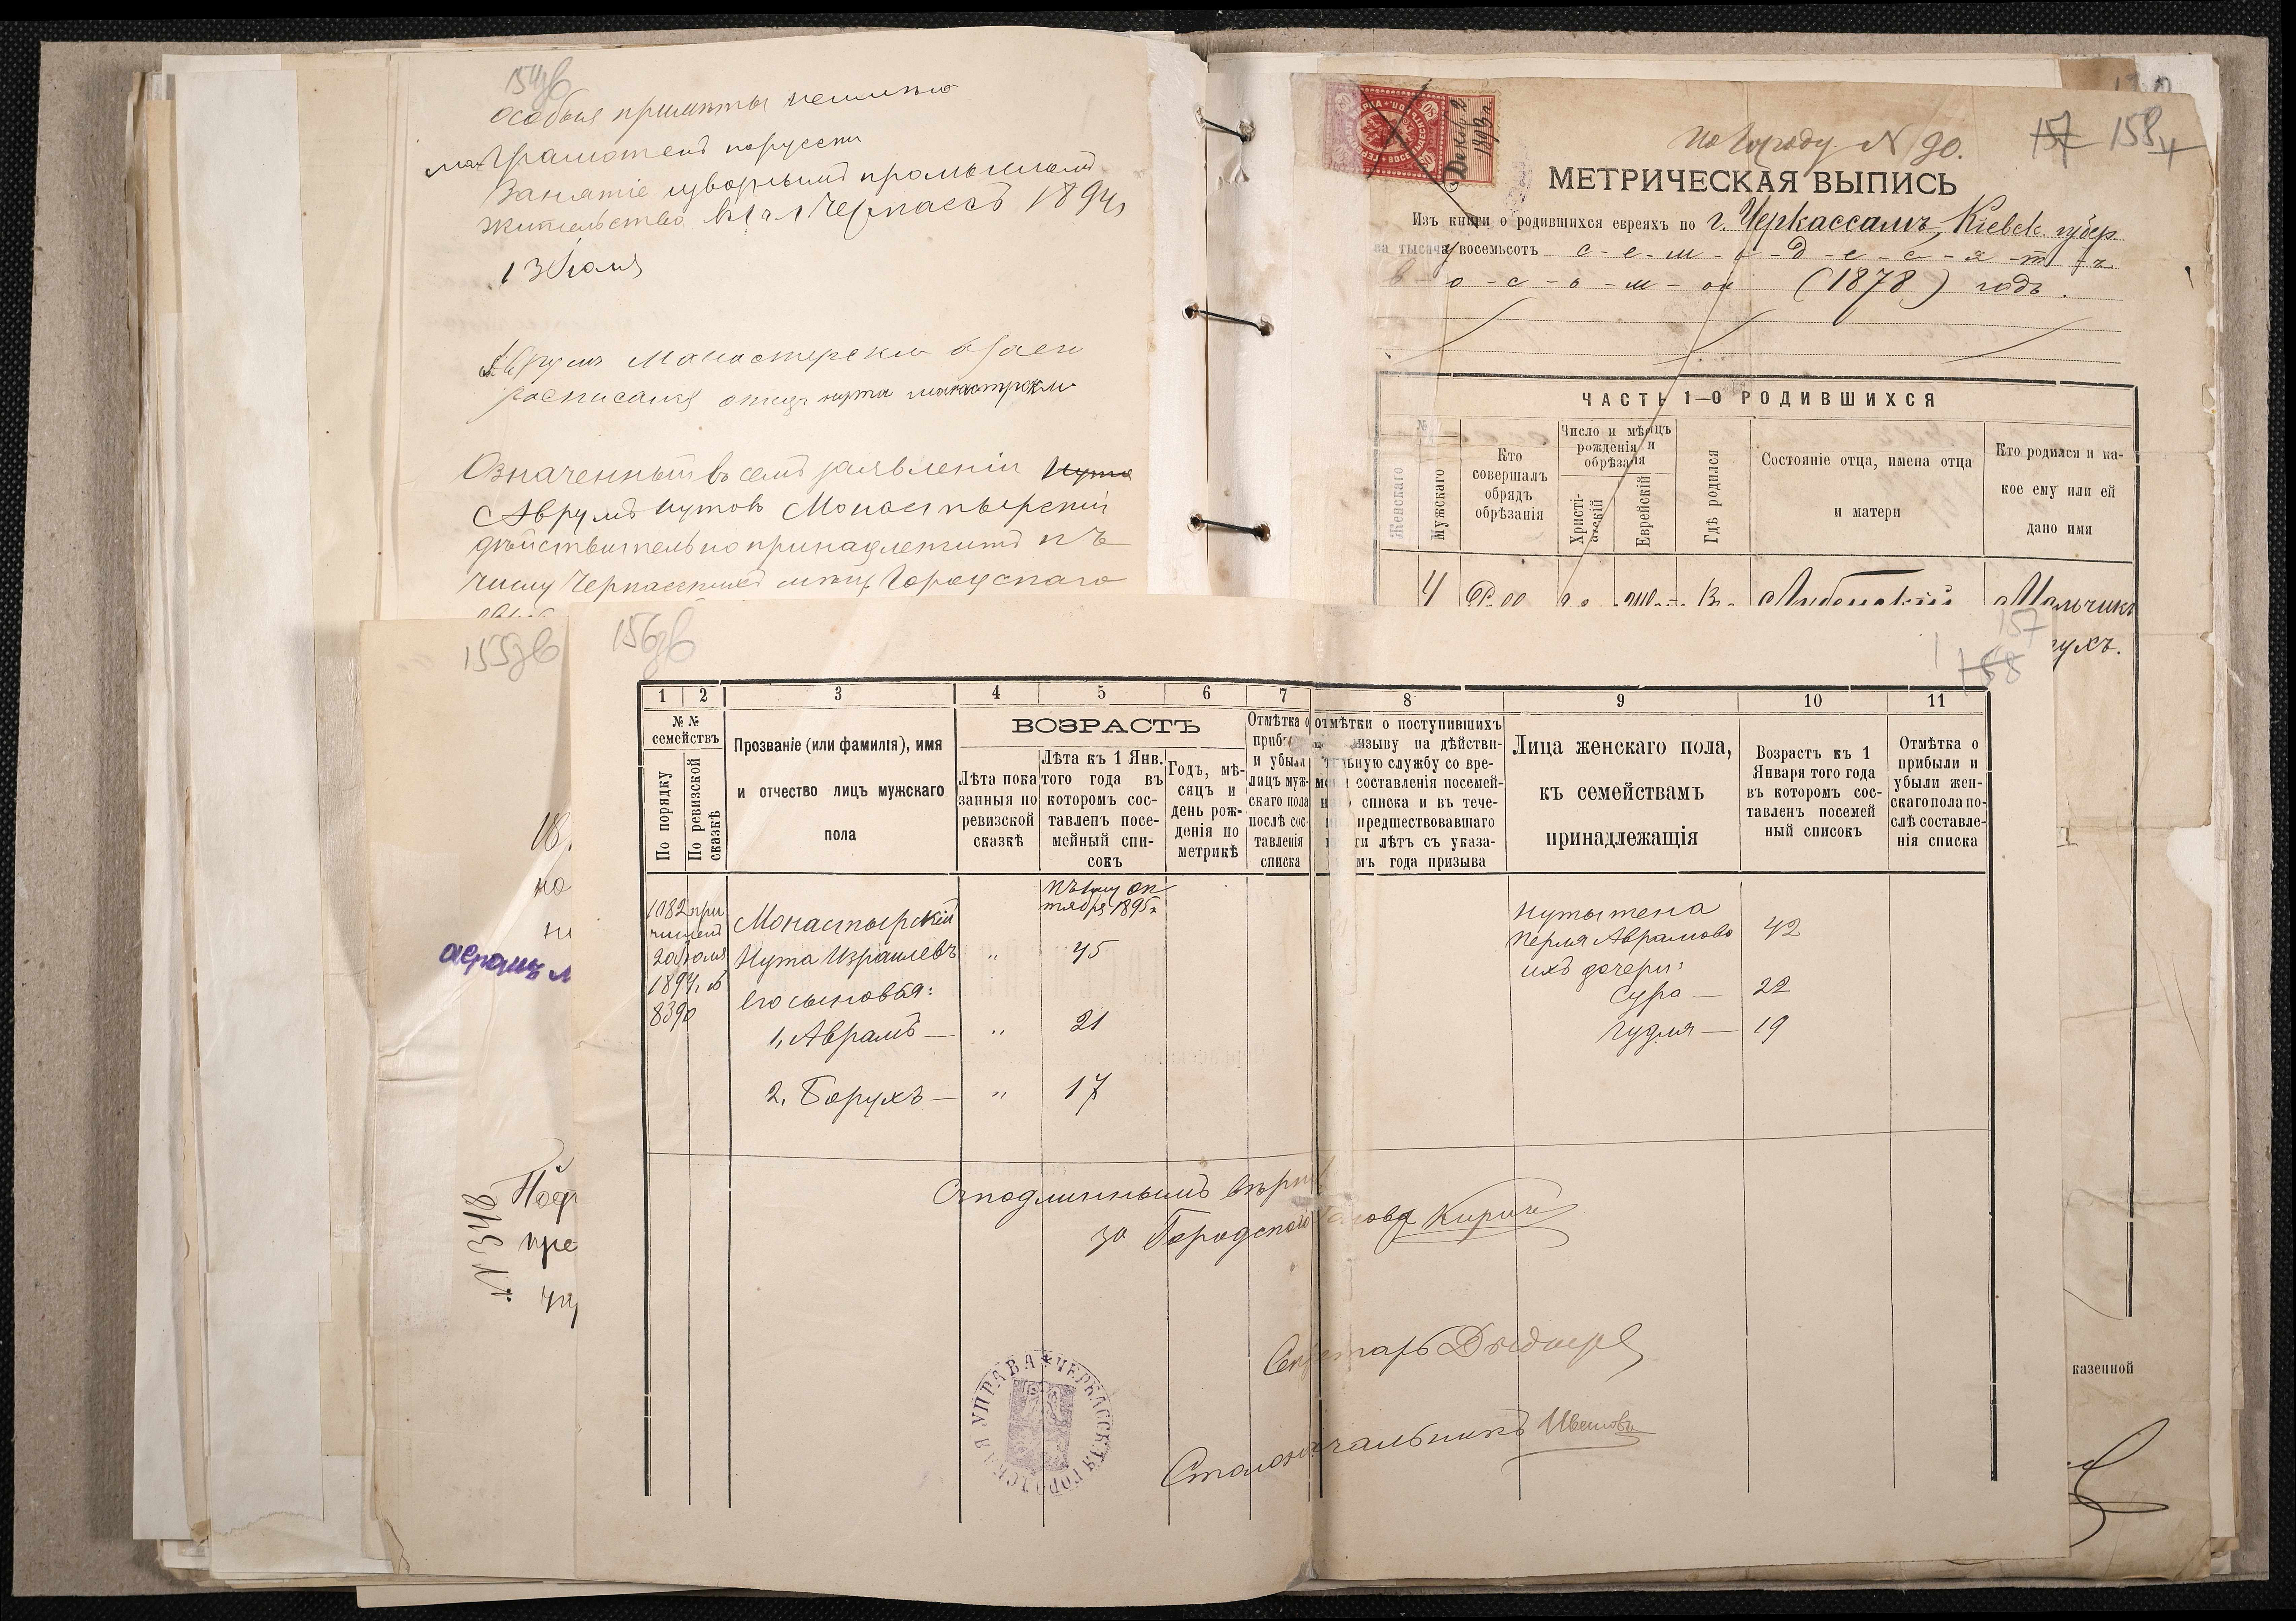 154зв
особыя примѣты
Грамотенъ порусски
Занятіе извознымъ промысломъ
жительство въ г. Черкассѣ 1894 г
13 Юля
Аврумъ Манастерски въ
росписался отецъ нута манастрски
Означенный въ семъ заявленіи Нута
Аврумъ Нутовъ Монастырскій
дѣйствительно принадлежитъ къ
числу Черкасскихъ мѣщ. Городскаго
155зв
но
№ 348
пре
157 158
По Городу N 90.
Декабр. 2
1893 г.
МЕТРИЧЕСКАЯ ВЫПИСЬ
Изъ книги о родившихся евреяхъ по г. Черкассамъ, Кіевск. губер.
за тысяча восемьсотъ с-е-м-ь-д-е-с-я-т-ъ
в-о-с-ь-м-ой (1878) годъ.
ЧАСТЬ 1—О РОДИВШИХСЯ
№
Женскаго
Мужскаго
Кто совершалъ обрядъ обрѣзанія
Число и мѣсяцъ рожденія и обрѣзаія
Христіанскій
Еврейскій
Гдѣ родился
Состояніе отца, имена отца и матери
Кто родился и какое ему или ей дано имя
4
Мальчикъ
ухъ.
казенной
156зв
157
158
1 2 3 4 5 6 7 8 9 10 11
№ № семействъ
По порядку
По ревизской сказкѣ
Прозваніе (или фамилія), имя
и отчество лицъ мужскаго
пола
ВОЗРАСТЪ
Лѣта показанныя по ревизской сказкѣ
Лѣта къ 1 Янв. того года въ котором составленъ посемейный списокъ
Годъ, мѣсяцъ и день рожденія по метрикѣ
Отмѣтка о приб и убыли лицъ мужскаго пола послѣ составленія списка
отмѣтки о поступившихъ
изыву на дѣйстви-
ьную службу со вре-
составленія посемей-
списка и въ тече-
предшествовавшаго
ти лѣтъ съ указа-
мъ года призыва
Лица женскаго пола,
къ семействамъ
принадлежащія
Возрастъ къ 1
Января того года
въ которомъ сос-
тавленъ посемей
ный списокъ
Отмѣтка о
прибыли и
убыли жен-
скаго пола по-
слѣ составле-
нія списка
къ 1му ок
тября 1895 г.
1182 при
численъ
20 Юля
1894 г. №
8390
Монастырскій
Нута Израилевъ „ 45
его сыновья:
1, Аврамъ — „ 21
2, Борухъ — „ 17
Нуты жена
Перля Аврамова 42
ихъ дочери:
Сура — 22
Гудля — 19
Съ подлиннымъ вѣрно
За Городского Голова
Секретарь
Столоначальникъ
ЧЕРКАССКАЯ ГОРОДСКАЯ УПРАВА